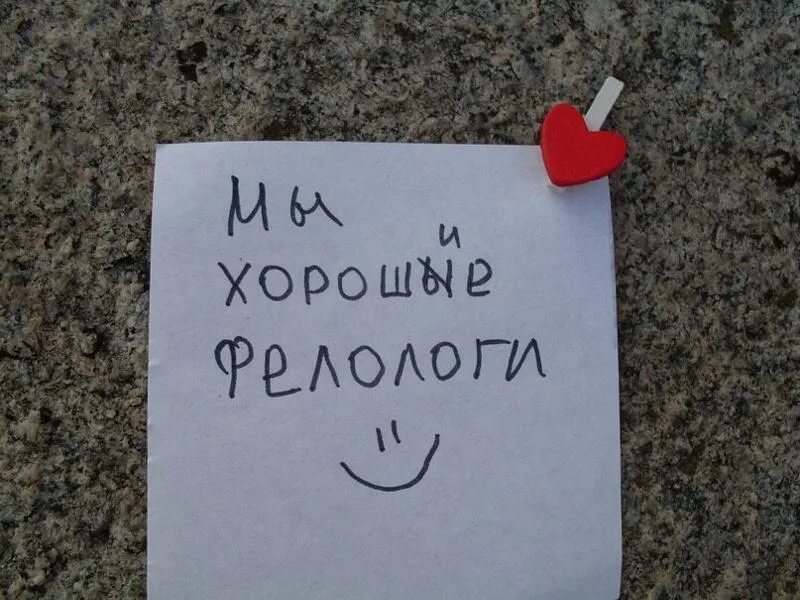 Мы
хорошие
фелологи